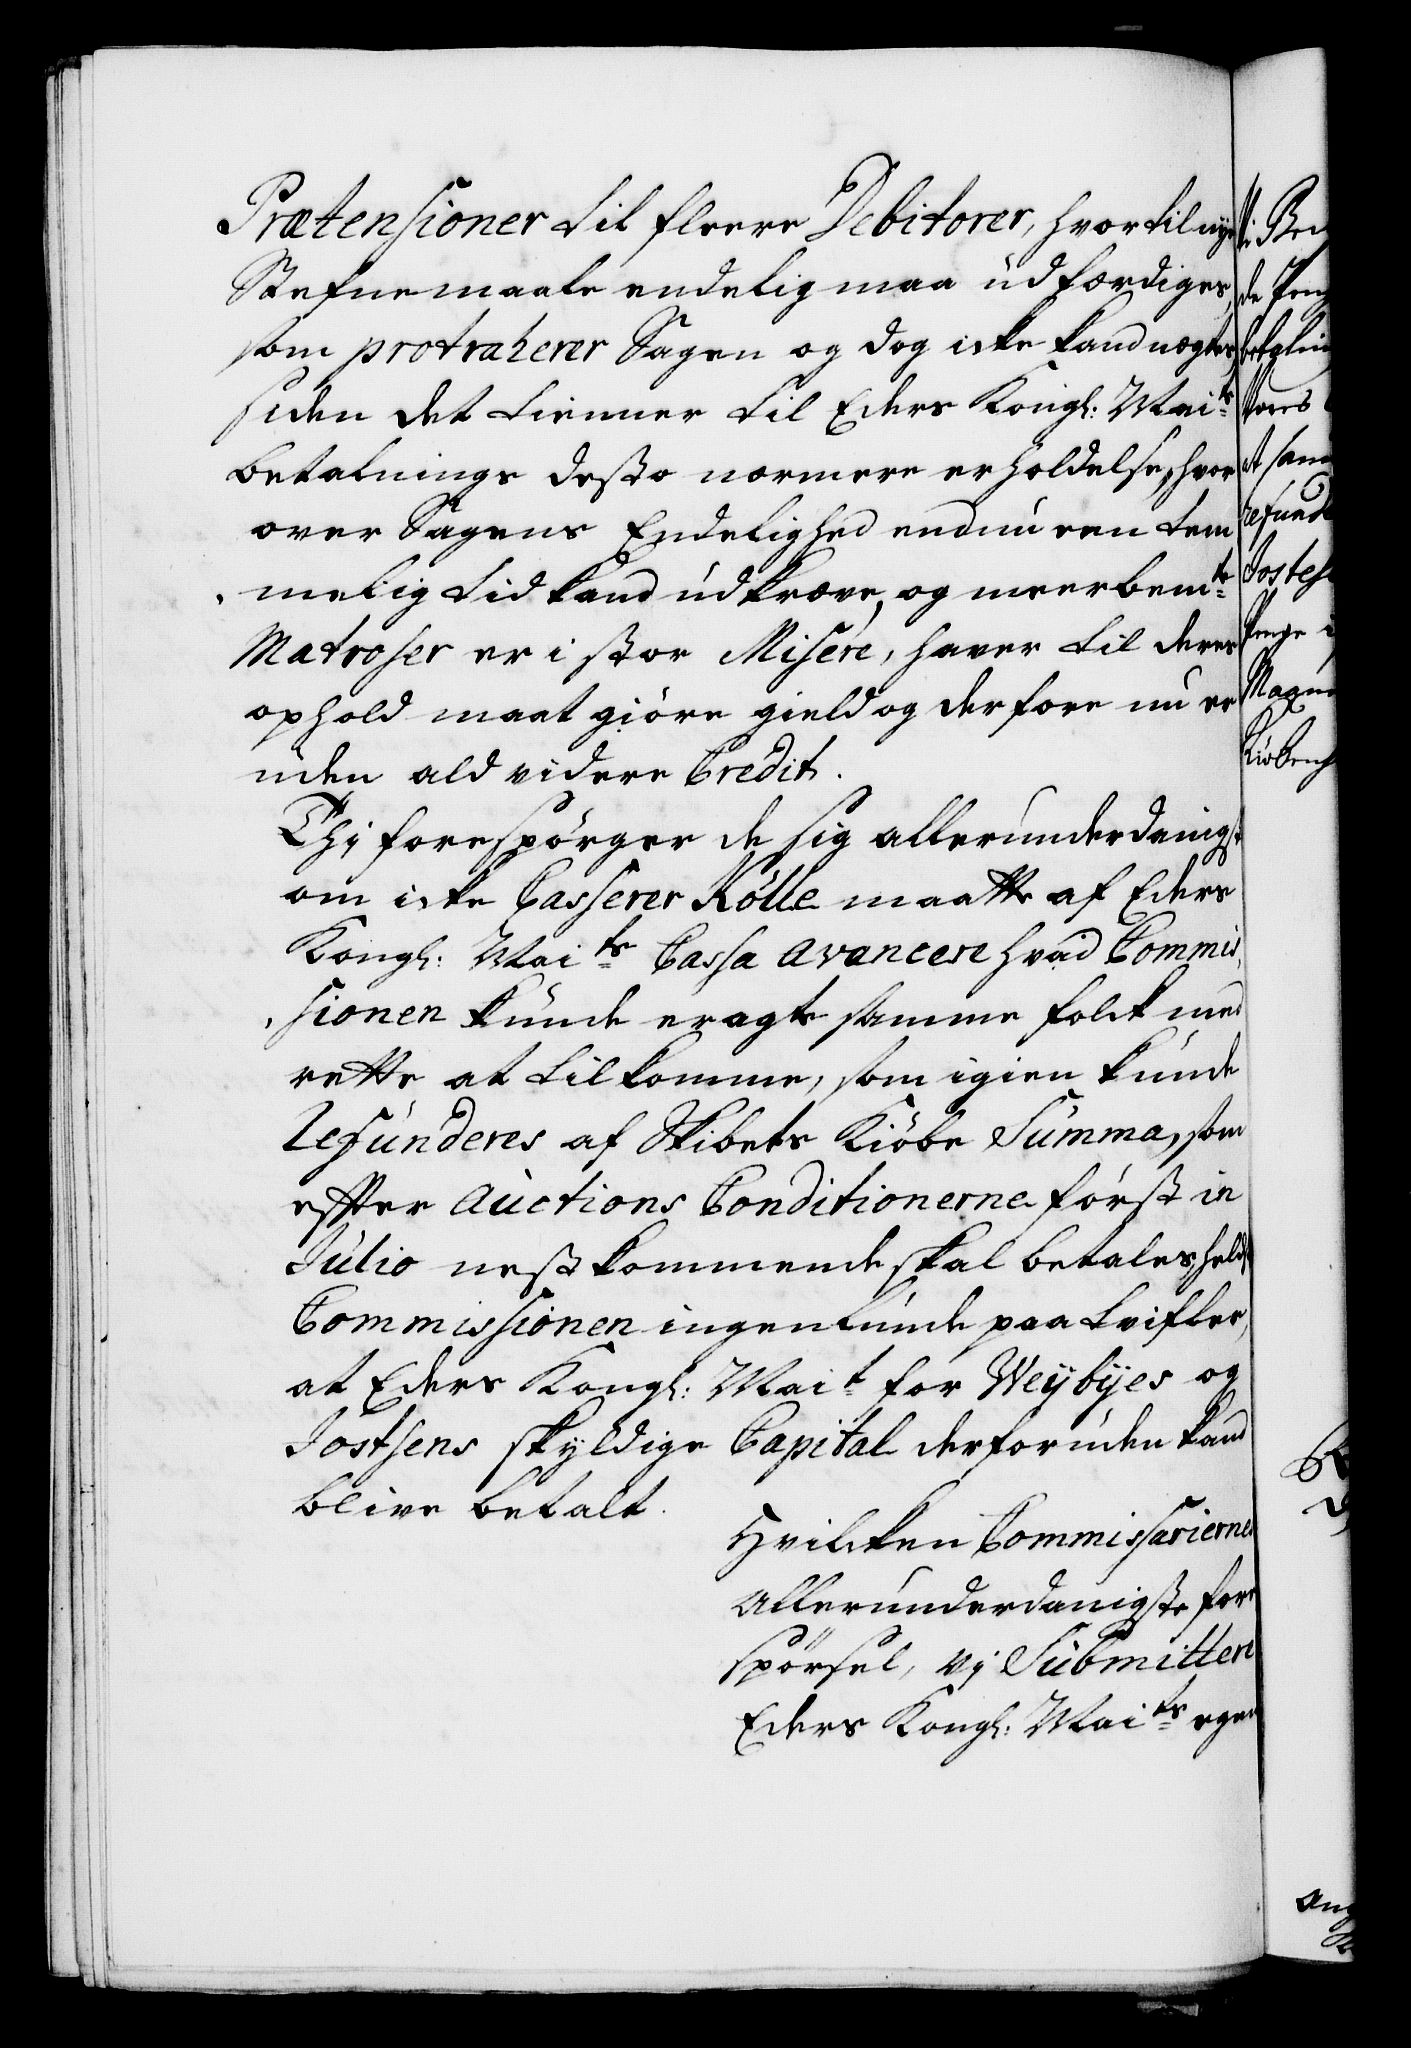 Prætensioner til fleere Debitorer, hvortil nye
Stefnemaale endelig maa udfærdiges,
som protraherer Sagen og dog icke kand nægtes,
siden det tienner til Eders Kongl: Maits
betalnings desto nærmere erholdelse, hvor
over Sagens Endelighed endnu een tem
melig tid kand udkræve, og meerbemte
Matroser er i stor Misere, haver til deres
ophold maat giöre gield og derfore nu er
uden ald videre Credit.
Thj forespörger de sig allerunderdanigst
om icke Casserer Rölle maatte af Eders
Kongl: Maits Cassa avancere hvad Commis
sionen kunde eragte samme folck med
rette at tilkomme, som igien kunde
refunderes af Skibets Kiöbe Summa, som
effter Auctions Conditionerne först in
Julio nestkommende skal betales, helst
Commissionen ingenlunde paa tvifler,
at Eders Kongl: Mait for Weybyes og
Jostsens skyldige Capital derforuden kand
blive betalt.
Hvilcken Commissariernes
allerunderdanigste fore
spörsel, vj Submittere
Eders Kongl: Maits egen